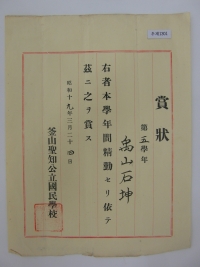 賞狀
第五學年
禹山石坤
右者本學年間精勤セリ依テ
茲ニ之ヲ賞ス
昭和十九年三月二十四日
釜山聖知公立國民學校